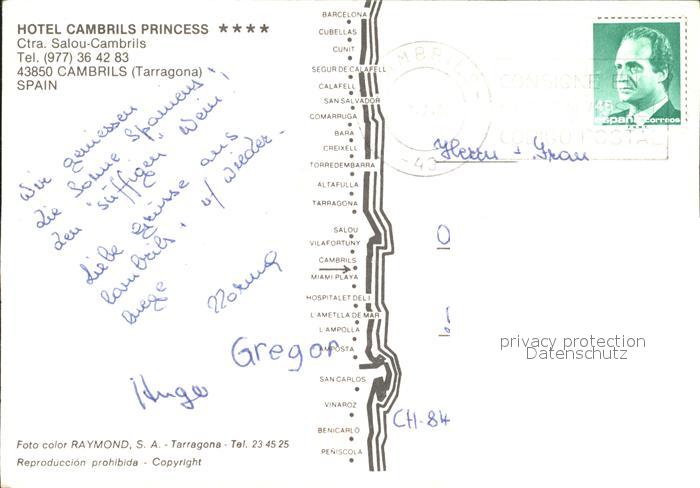 HOTEL CAMBRILS PRINCESS ★★★★
Ctra. Salou-Cambrils
Tel. (977) 36 42 83
43850 CAMBRILS (Tarragona)
SPAIN
Wir geniessen
die Sonne Spaniens,
den "süffigen" Wein!
Liebe Grüsse aus
Cambrils
Norma
Gregor
Hugo
Foto color RAYMOND, S. A. - Tarragona - Tel. 23 45 25
Reproducción prohibida - Copyright
BARCELONA
CUBELLAS
CUNIT
SEGUR DE CALAFELL
CALAFELL
SAN SALVADOR
COMARRUGA
BARA
CREIXELL
TORREDEMBARRA
ALTAFULLA
TARRAGONA
SALOU
VILAFORTUNY
CAMBRILS
MIAMI PLAYA
HOSPITALET DEL I
L'AMETLLA DE MAR
L'AMPOLLA
AMPOSTA
SAN CARLOS
VINAROZ
BENICARLO
PEÑISCOLA
CAMBRILS
-43
CONSIGNE
CODIGO POSTAL
45
españa correos
Herrn + Frau
CH-84
privacy protection
Datenschutz